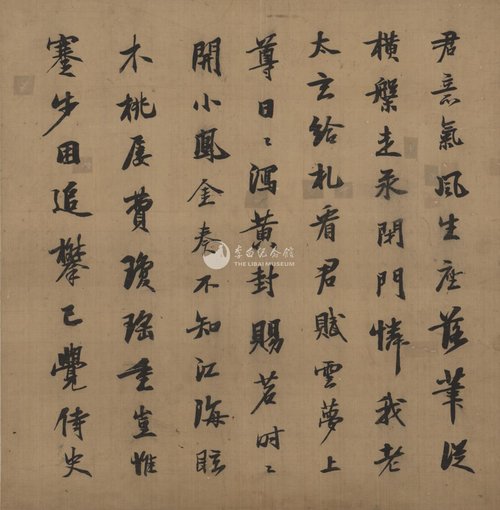 君意氣風生座落筆從
橫槃走汞閉門憐我老
太玄給札看君賦雲夢上
尊日々瀉黃封賜茗時々
開小鳳金奏不知江海眩
木桃屢費瓊瑤重豈惟
蹇步困追攀已覺侍史
李白纪念馆
THE LIBAI MUSEUM